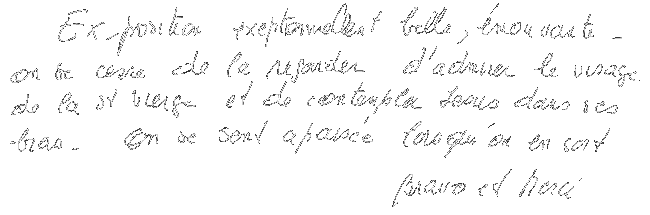 Exposition exeptionnellent belle, émouvante -
on ne cesse de la regarder d'admirer le visage
de la St Vierge et de contempler Jesus dans ses
bras - On se sent apaisée lorsqu'on en sort
Bravo et Merci